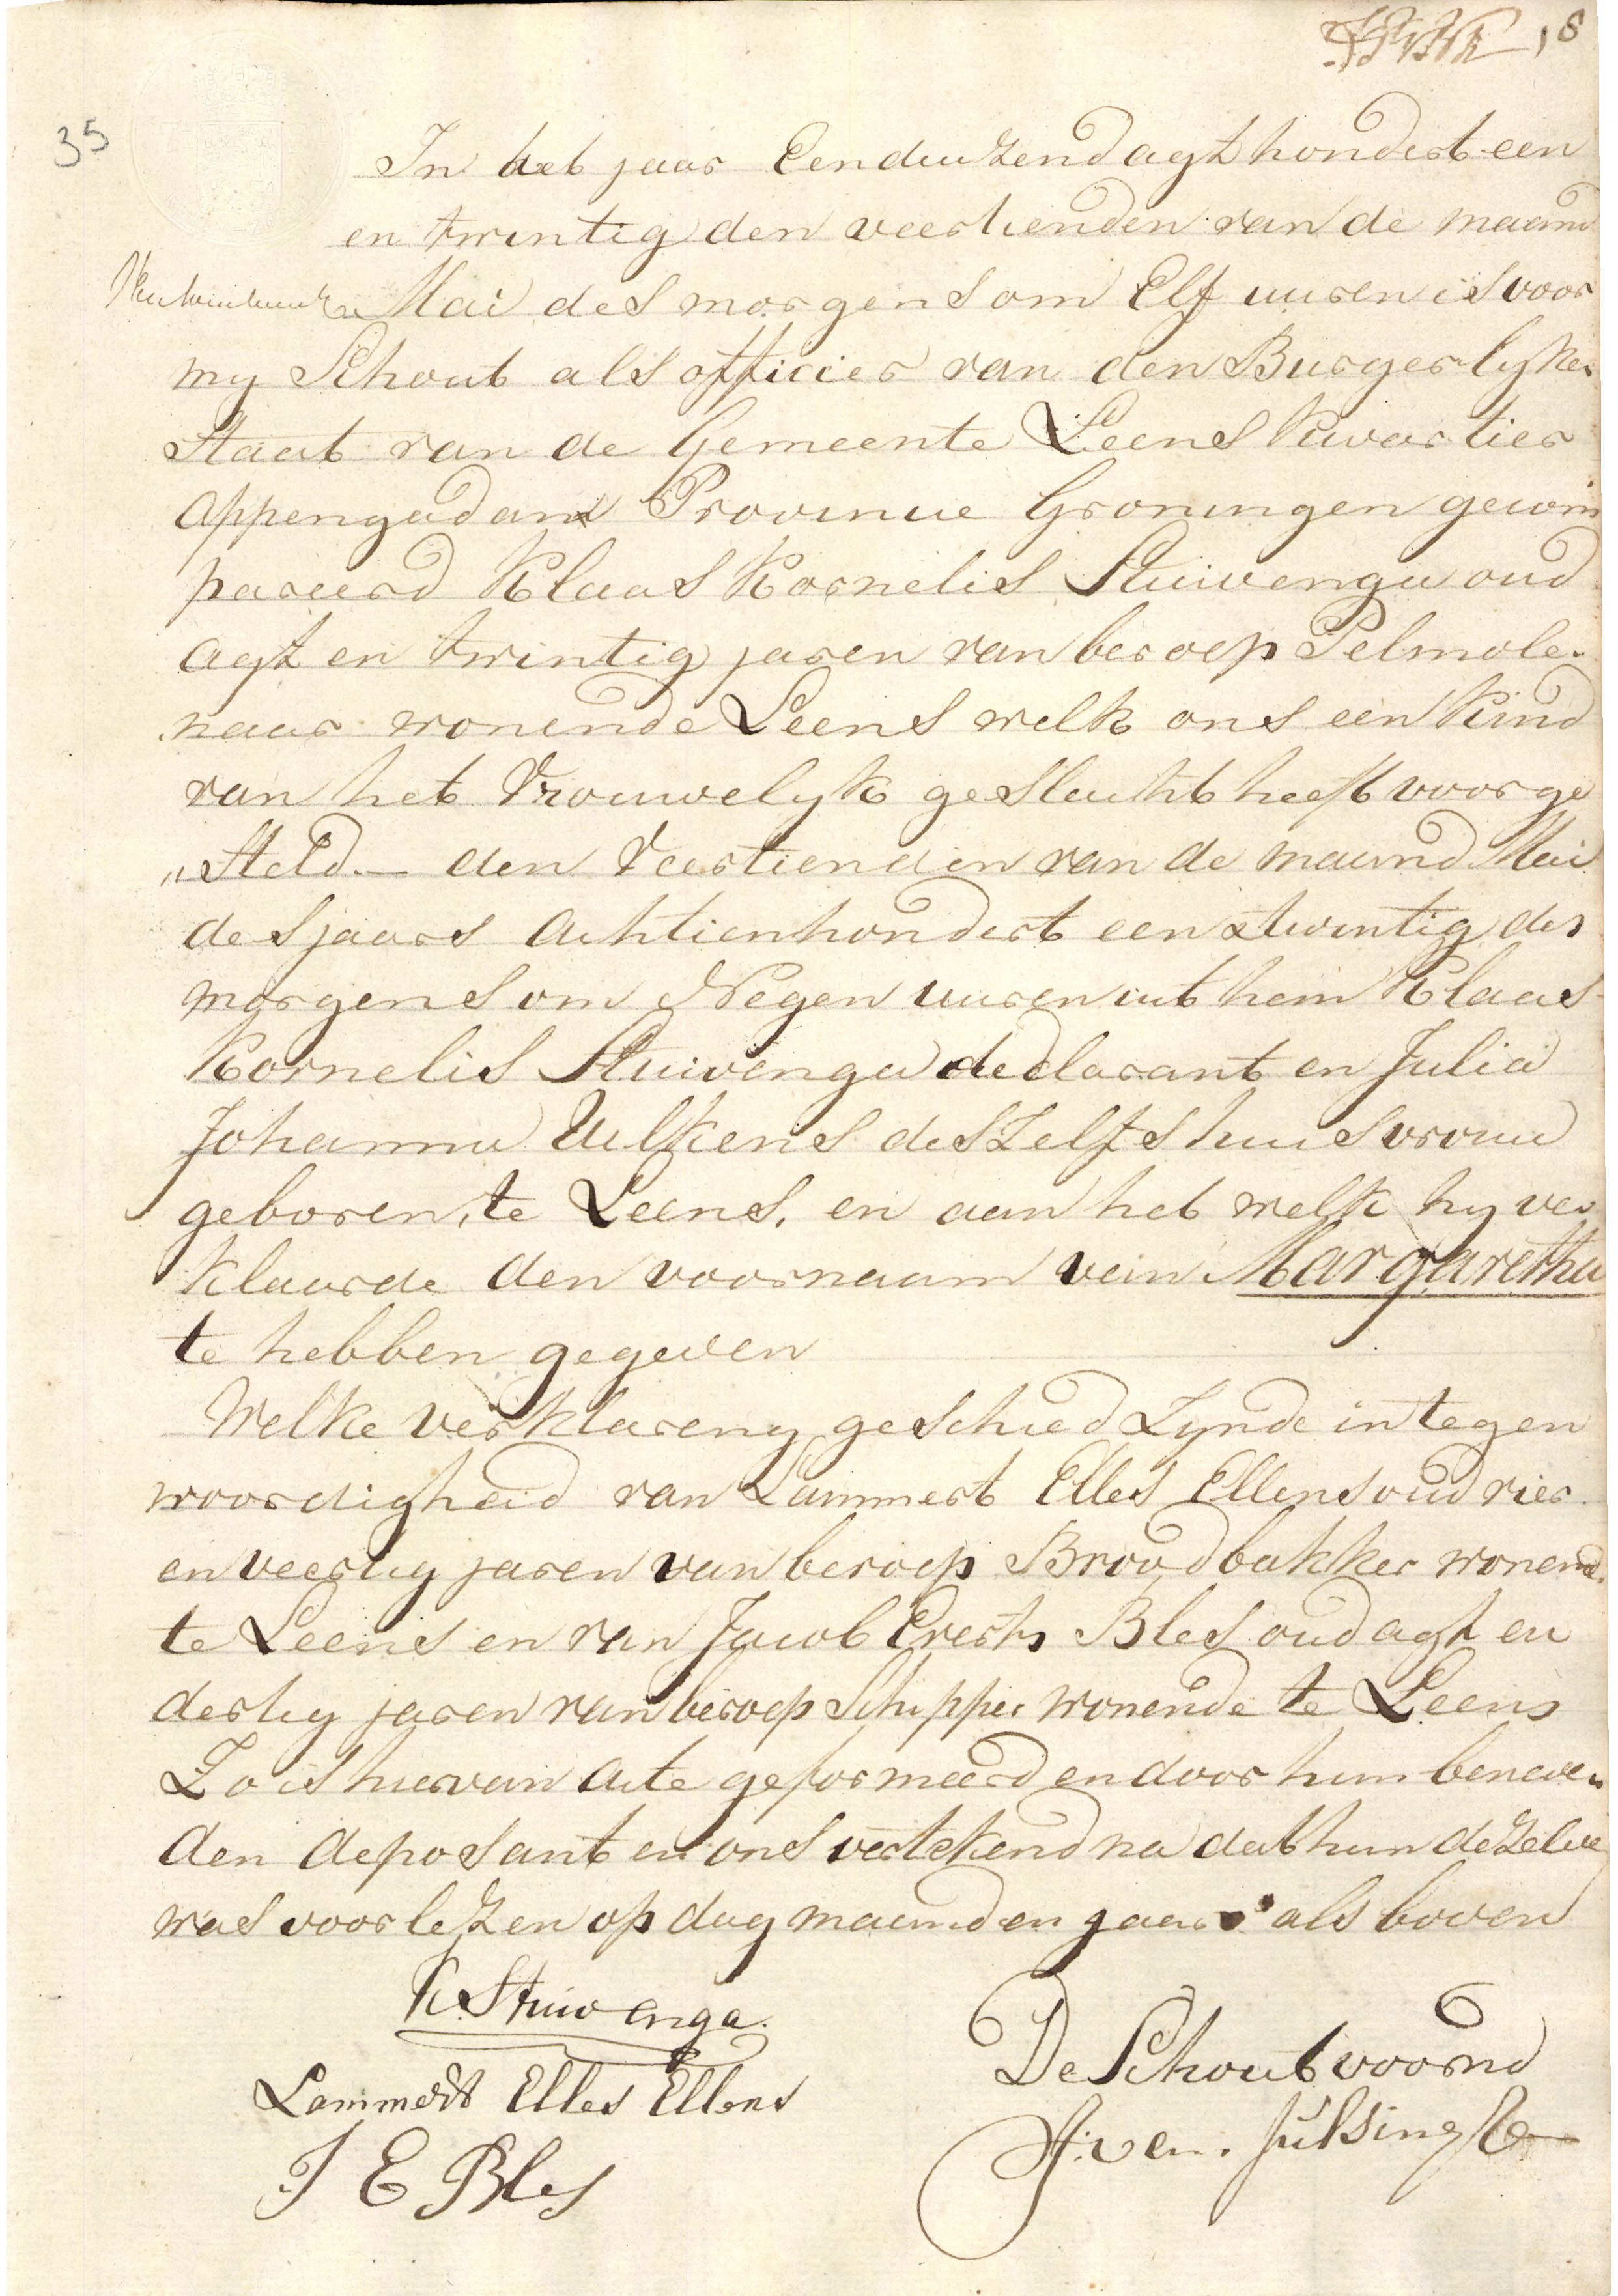 18
35
In het jaar Eenduizend agt hondert een
en twintig den veertienden van de maand
Mai des morgens om Elf uuren is voor
my Schout als officier van den Burgerlyken
Staat van de Gemeente Leens Kwartier
Appengadam Provincie Groningen gecom
pareerd Klaas Kornelis Stuivenga oud
agt en twintig jaren van beroep Pelmole
naar wonende Leens welk ons een Kind
van het Vrouwelyk geslacht heeft voorge
„steld.— den Veertienden van de maand Mai
des jaars Achtienhondert een twintig des
morgens om Negen uuren uit hem Klaas
Kornelis Stuivenga declarant en Julia
Johanna Uilkens deszelfs huisvrouw
geboren, te Leens, en aan het welk hy ver
klaarde den voornaam van Margaretha
te hebben gegeven
Welke verklareng geschied Zynde in tegen
woordigheid van Lammert Elles Ellens oud vier
en veertig jaren van beroep Broodbakker wonend
te Leens en van Jacob Everts Bles oud agt en
dertig jaren van beroep Schipper wonende te Leens
Zo is hiervan acte geformeerd en door hun beneven
den deposant en ons vertekend na dat hun dezelve
was voorlezen op dag maand en jaar als boven
K. Stuivenga.
De Schout voornd
Lammert Elles Ellens
J E Bles